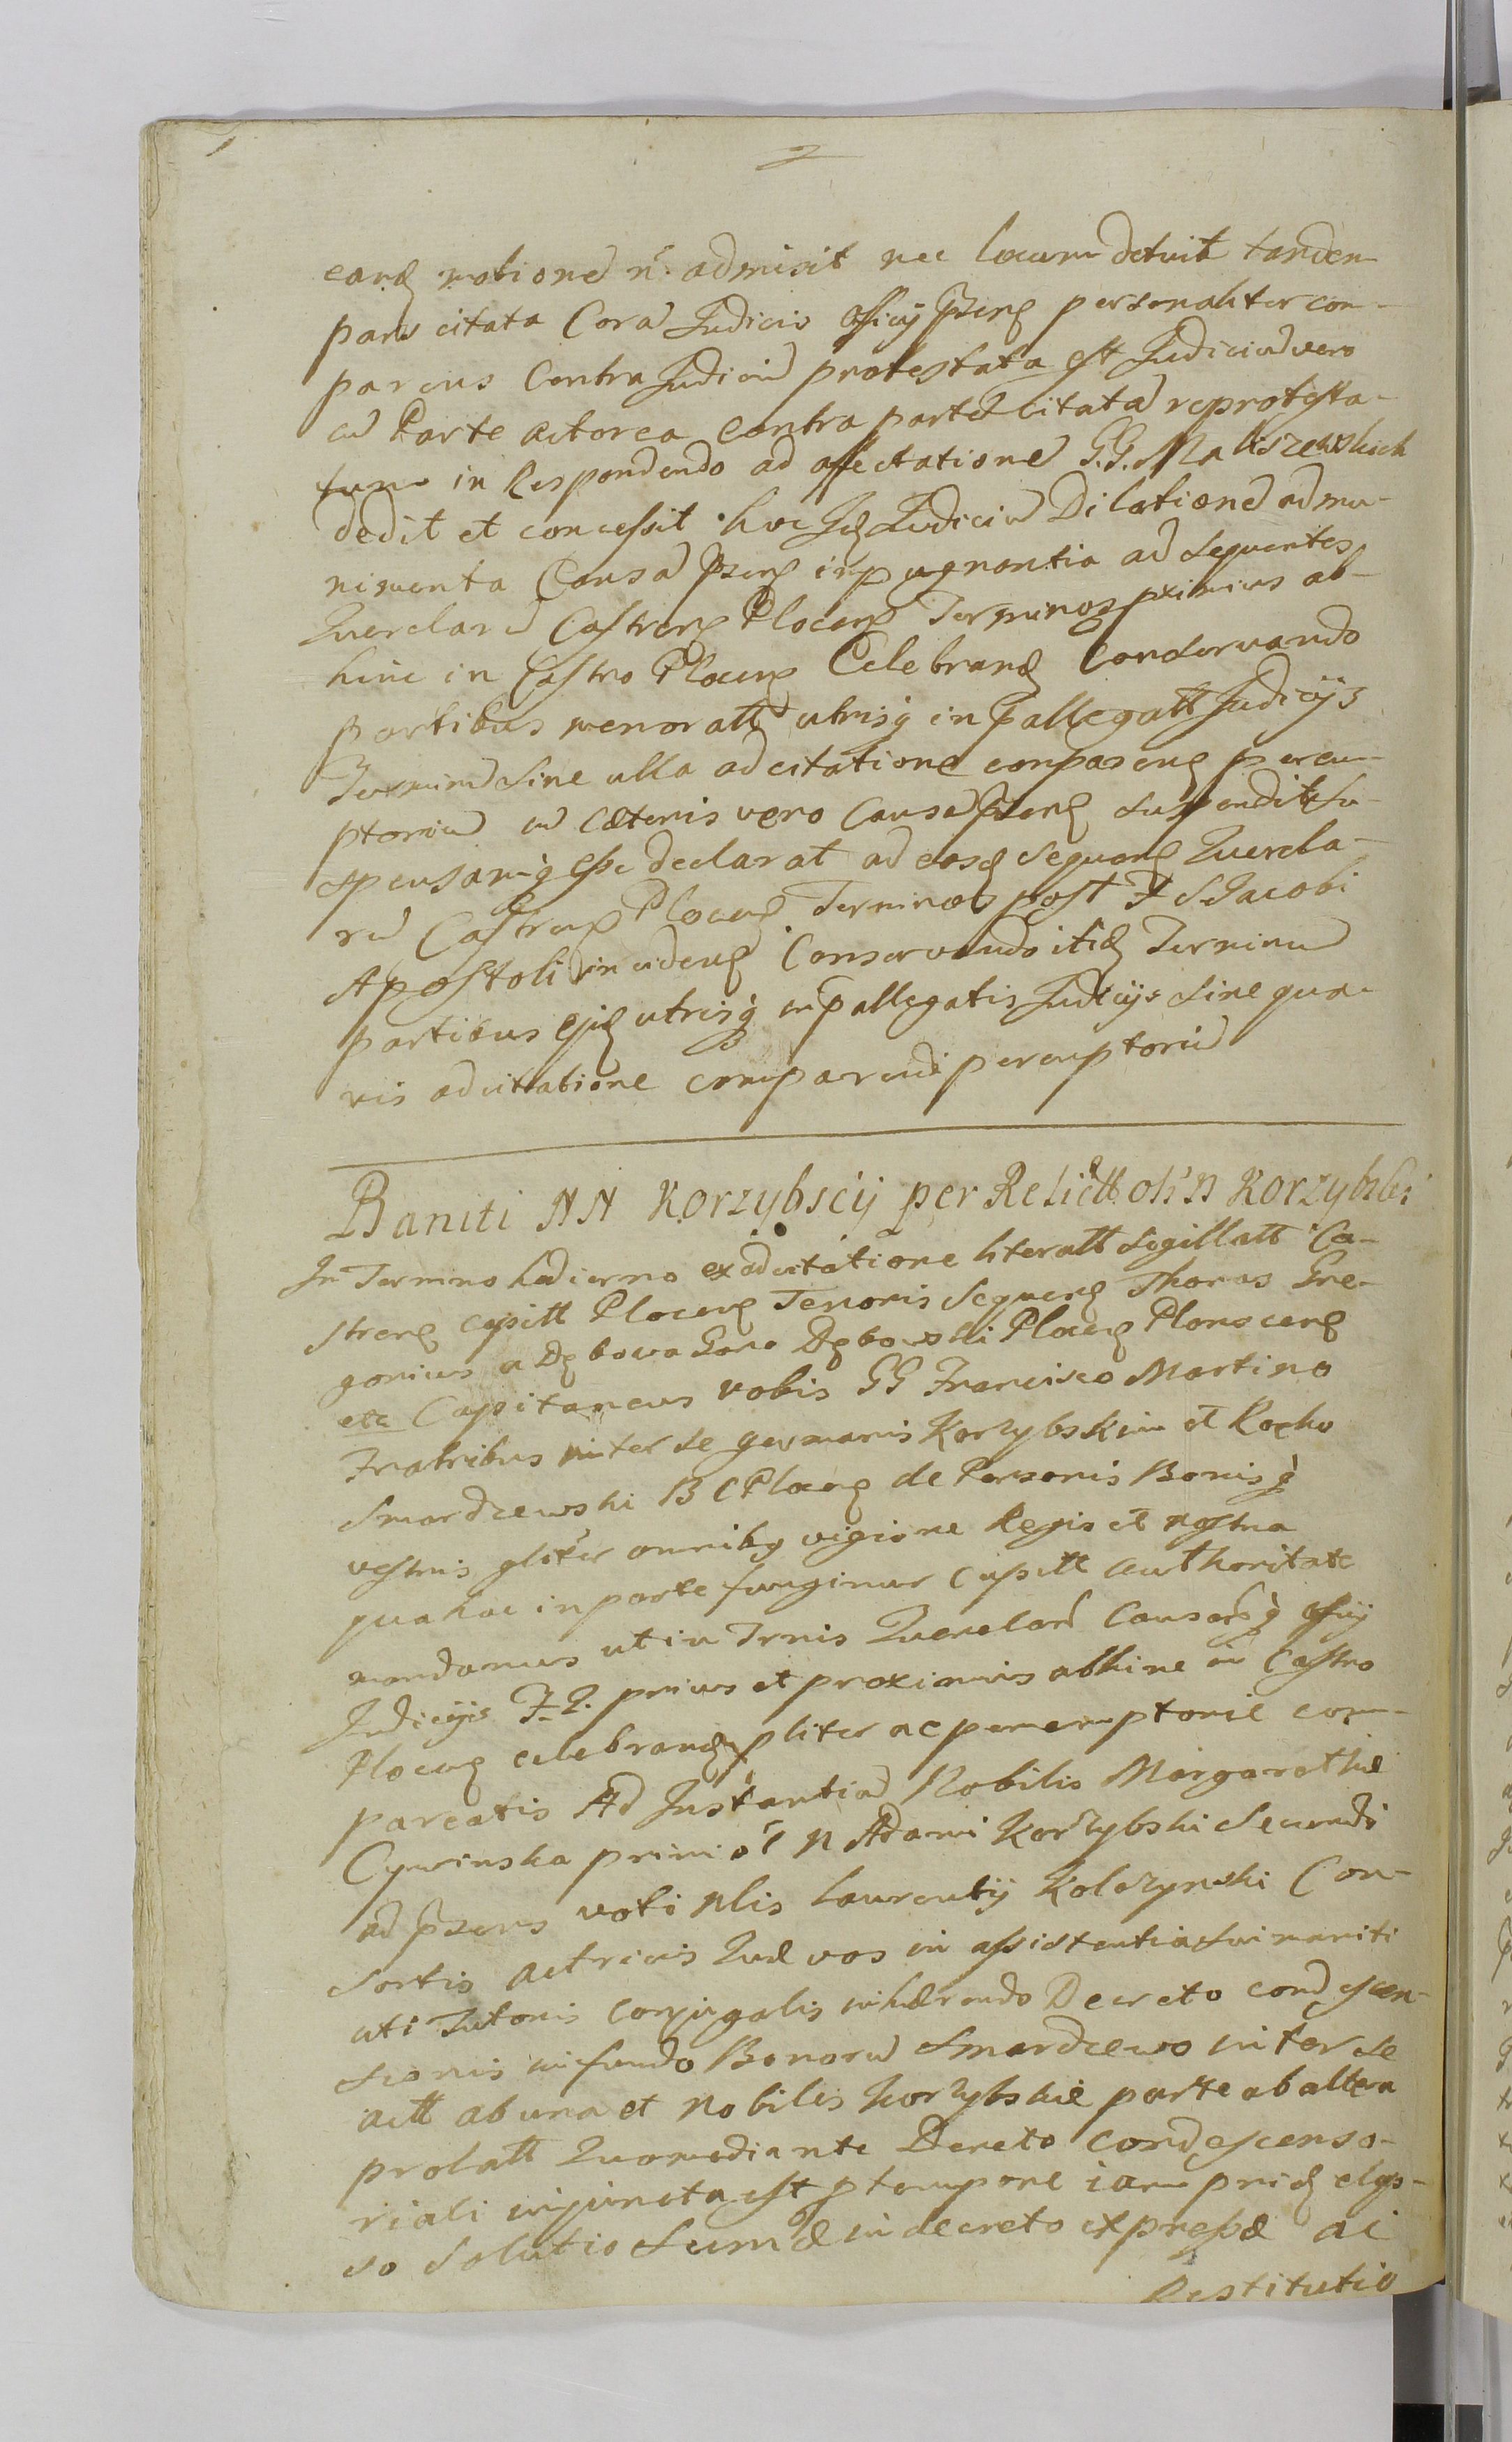 2
eand motione n admisit nec locum detuit tandem
pars citata Cora Judicio officij pnseng personaliter com-
parens Contra Judiciu protestata est Judiciu vero
cu Parte actorea contra parte citata reprotesta-
tum in Respondendo ad affectatione G.G. Maliszewskich
dedit et concessit hoc Jd Judiciu Dilatione ad mu-
nimenta Causa pnseng inpugnantia ad sequentes
Querelaru Castreng Ploceng Terminos proximius ab-
hinc in Castro Ploceng Celebrand Conservando
partibus memoratt utrisq in pallegatt Judicijs
Terminu sine ulla adcitatione comparend perem-
ptoriu in cæteris vero Causa pnseng suspendit su-
spensamq esse declarat ad eosd sequeng Querela-
ru Castreng Ploceng Terminos post F S Jacobi
Apostoli incideng Conservando itid Terminu
partibus ejsd utrisq in pallegatis Judicijs sine qua-
vis adcitatione comparendi peremptoriu
Baniti NN Korzybscij per Relictt oli N Korzybski
In Termino hodierno ex adcitatione literatt sigillatt Ca-
streng capitt Ploceng Tenoris sequeng Thomas Gre-
gorius a Dębowa Gora Dębowski Ploceng Plonsceng
etc Capitaneus vobis GG Francisco Martino
Fratribus inter se germanis Korzybskim et Rocho
Smardzewski B C Ploceng de Personis Bonisq
vestris gliter omnibq vigione Regia et nostra
qua hac in parte fungimur Capitt authoritate
mandamus ut in Trnis Querelaru Causarq officij
Judicijs F. Q. prius et proximius abhinc in Castro
Ploceng celebrand pliter ac peremptorie com-
pareatis Ad Instantia Nobilis Margarethæ
Cywinska primi ol N Adami Korzybski Secundi
ad pnsens voti Nlis Laurentij Kolczynski Con-
sortis actricis Quæ vos in assistentia sui mariti
uti Tutoris conjugalis inhærendo Decreto condescen-
sionis in fundo Bonoru Smardzewo inter se
actt ab una et Nobiles Korzybskie parte ab altera
prolatt Quo mediante Decreto condescenso-
riali injuncta est p tempore iam prid elap-
so solutio Sumæ in decreto expressæ ac
Restitutio